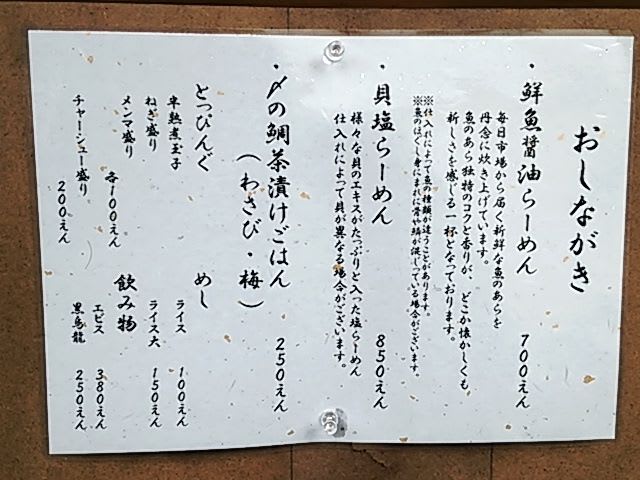 おしながき
・鮮魚醤油らーめん 700えん
毎日市場から届く新鮮な魚のあらを
丹念に炊き上げています。
魚のあら独特のコクと香りが、どこか懐かしくも
新しさを感じる一杯となっております。
※仕入れによって魚の種類が違うことがあります。
※魚のほぐし身にまれに骨や鱗が混じっている場合がございます。
・貝塩らーめん 850えん
様々な貝のエキスがたっぷりと入った塩らーめん
仕入れによって貝が異なる場合がございます。
・〆の鯛茶漬けごはん 250えん
(わさび・梅)
とっぴんぐ
半熟煮玉子
ねぎ盛り
メンマ盛り
各100えん
チャーシュー盛り
200えん
めし
ライス 100えん
ライス大 150えん
飲み物
エビス 380えん
黒烏龍 250えん